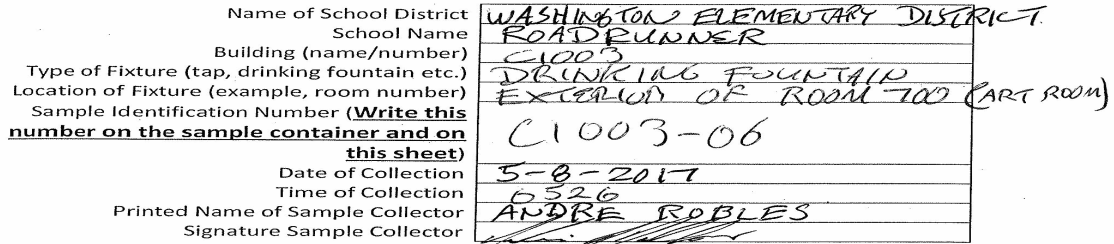 Name of School District WASHINGTON ELEMENTARY DISTRICT
School Name ROADRUNNER
Building (name/number) C1003
Type of Fixture (tap, drinking fountain etc.) DRINKING FOUNTAIN
Location of Fixture (example, room number) EXTERIOR OF ROOM 700 (ART ROOM)
Sample Identification Number (Write this
number on the sample container and on
this sheet) C1003-06
Date of Collection 5-8-2017
Time of Collection 0526
Printed Name of Sample Collector ANDRE ROBLES
Signature Sample Collector